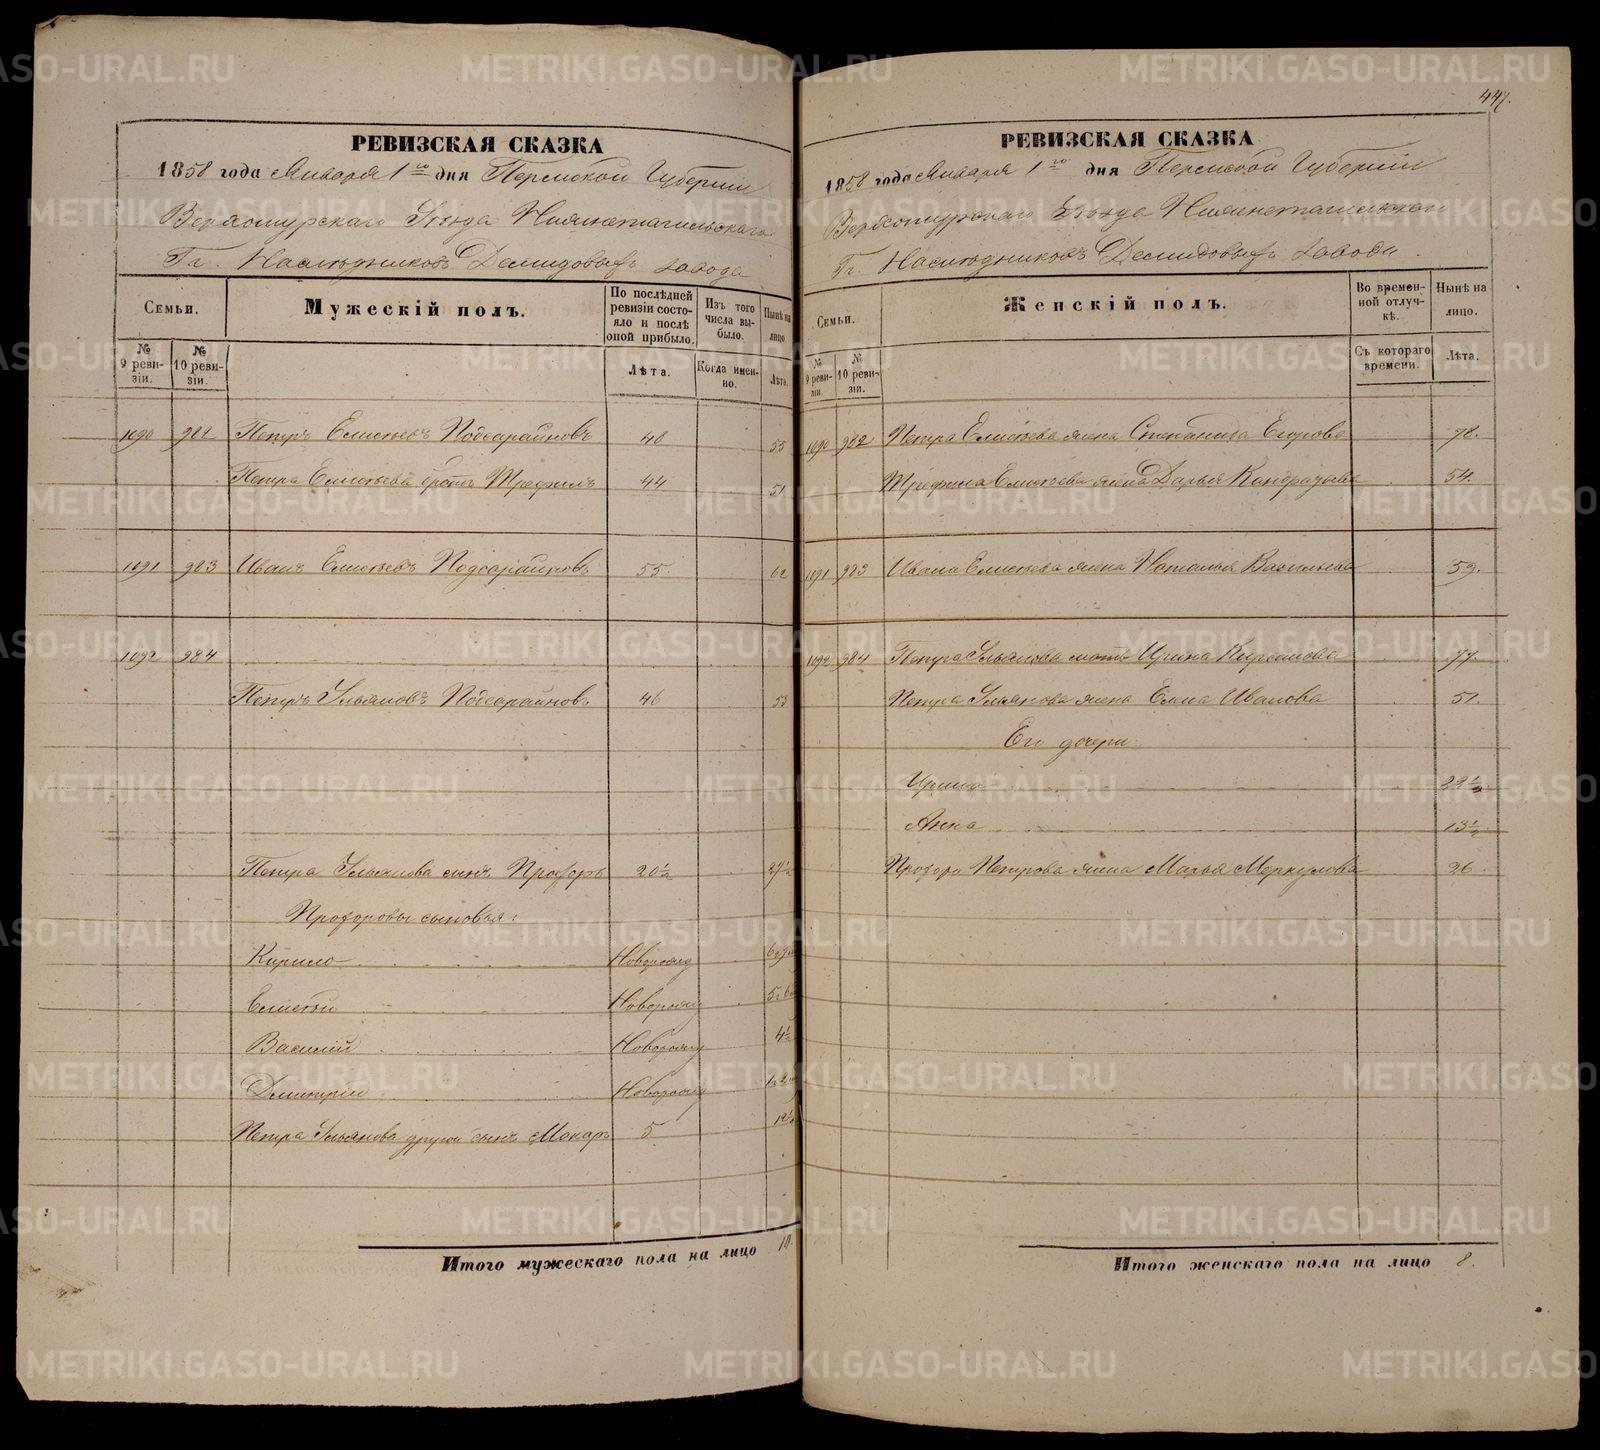 447.
РЕВИЗСКАЯ СКАЗКА
1858 года Января 1го дня Пермской Губернии
Верхотурскаго Уезда Нижнетагильскаго
Гг. Наследниковъ Демидовыхъ завода
Семьи.
Мужескій полъ.
По послѣдней ревизіи состояло и послѣ оной прибыло.
Изъ того числа выбыло.
Нынѣ на лицо.
№ 9 ревизіи.
№ 10 ревизіи.
Лѣта.
Когда именно.
Лѣта.
1090 982 Петръ Елисѣевъ Подсарайновъ 48 55
Петра Елисѣева братъ Трефилъ 44 51
1091 983 Иванъ Елисѣевъ Подсарайновъ 55. 62
1092 984
Петръ Ульяновъ Подсарайновъ 46 53
Петра Ульянова сынъ Прохоръ 20½ 27½
Прохоровы сыновья:
Кирило Новорожд
Елисѣй Новорожд
Василій Новорожд 4½
Дмитрій Новорожд
Петра Ульянова другой сынъ Макаръ 5 12½
Итого мужескаго пола на лицо 10.
РЕВИЗСКАЯ СКАЗКА
1858 года Января 1го дня Пермской Губерніи
Верхотурскаго Уезда Нижнетагильскаго
Гг. Наследниковъ Демидовыхъ завода.
Семьи.
Женскій полъ.
Во временной отлучкѣ.
Нынѣ на лицо.
№ 9 ревизіи.
№ 10 ревизіи.
Съ котораго времени.
Лѣта.
1090 982 Петра Елисѣева жена Степанида Егорова 78.
Трефила Елисѣева жена Дарья Кондратьева 54.
1091 983 Ивана Елисѣева жена Наталья Васильева 59.
1092 984 Петра Ульянова мать Ирина Кирсанова 77.
Петра Ульянова жена Елена Иванова 51.
Его дочери:
Ирина 22½
Анна 13½
Прохора Петрова жена Марья Меркулова 26
Итого женскаго пола на лицо 8.
METRIKI.GASO-URAL.RU